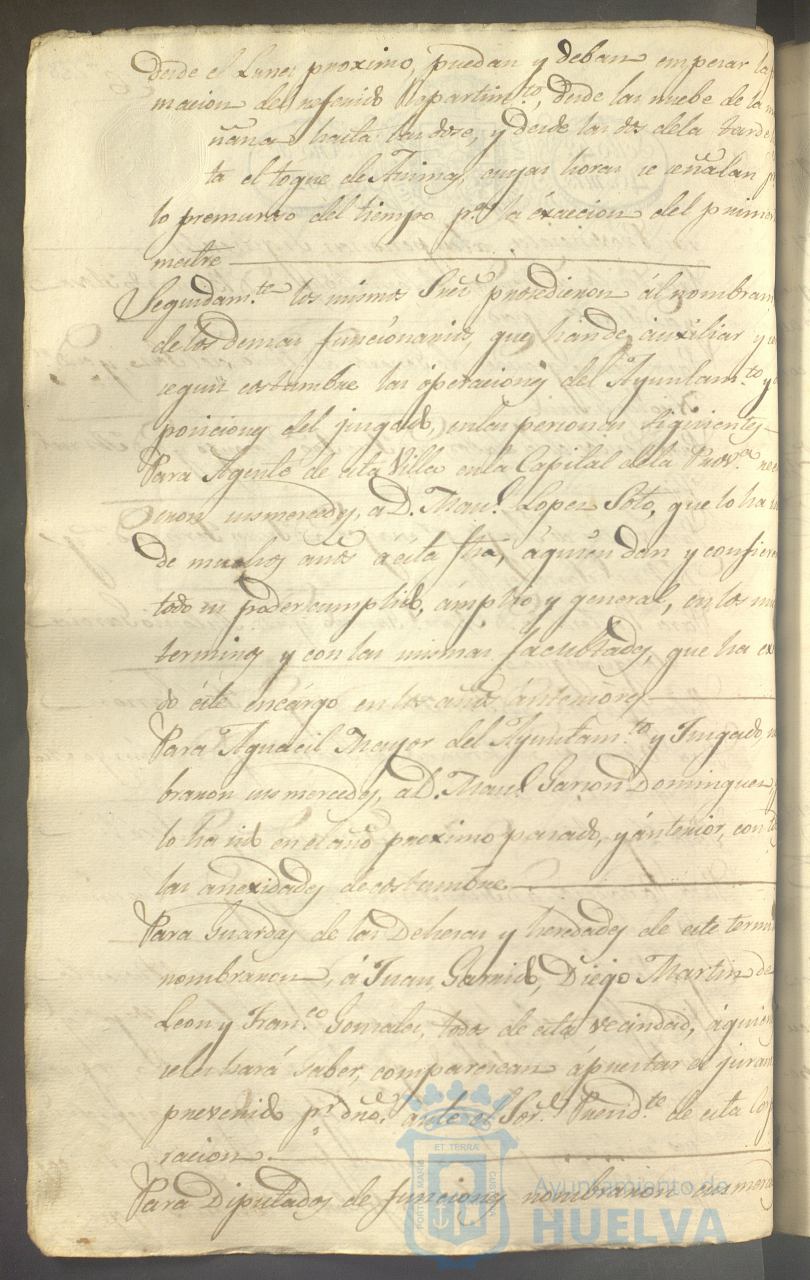 desde el Lunes proximo, puedan y deban empezar la
macion del referido Repartimto, desde las nuebe de la ma
ñana hasta las dose, y desde las dos dela tarde
ta el toque de Animas, cuyas horas se señalan p
lo premuroso del tiempo pa la éxaccion del primer
mestre
Seguidamte los mismos Sres prosedieron ál nombram
delos demas funcionarios, que hande áuxiliar y
segun costumbre las óperaciones del Ayuntamto y
posiciones del jusgado, enlas personas siguientes
Para Agente de esta Villa enla Capital dela Prova
eron usmercedes, a D. Manl Lopez Soto, que lo ha
de muchos años a esta fha, áquien dan y confieren
todo su poder cumplido, ámplio y general, enlos
terminos y con las mismas facultades, que ha
do éste encárgo en los años ánteriores
Para Aguacil Mayor del Ayuntamto y Jusgado, n
braron usmercedes, a D. Manl Garson Dominguez
lo ha sido en el año proximo pasado, y ánterior, con
las anexidades de costumbre
Para Guardas de las Dehesas y heredades de este termi
nombraron, á Juan Garrido, Diego Martin de
Leon y Franco Gonsales, todos de esta vecindad, áquien
seles hará saber, comparescan á prestar el juram
prevenido pr dro, ante el Sor Presidte de esta Cor
racion
Para Diputados de funciones nombraron usmerce
PORTUS MARIS
ET TERRÆ
CUSTODIA
Ayuntamiento de
HUELVA